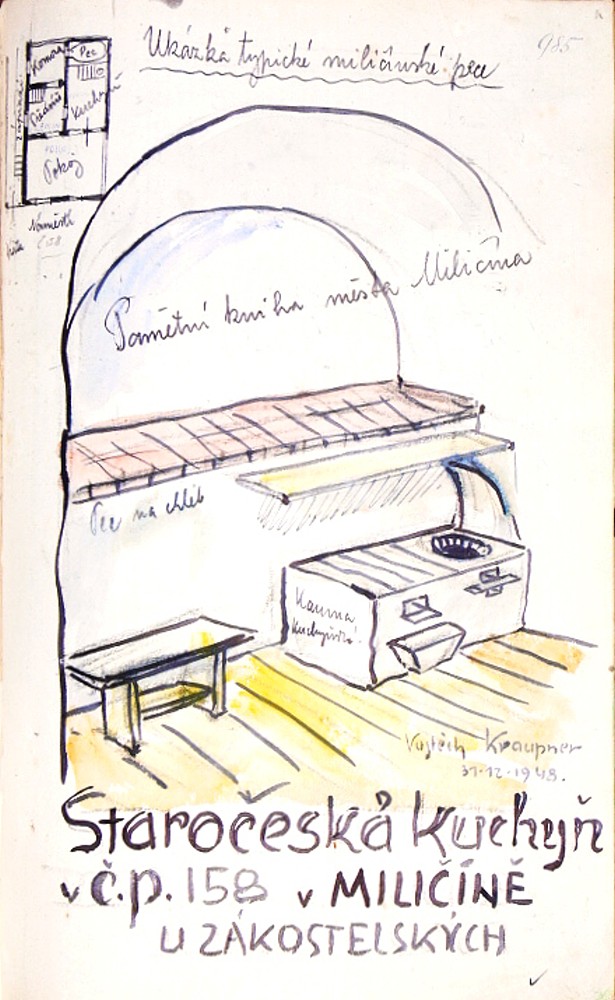 Ukázka typické miličínské pece
985
Komora
Pec
Kuchyň
Pokoj
Náměstí
Pamětní kniha města Miličína
Pec na chléb
Kamna
Kuchyňská
Vojtěch Kraupner
31·12·1948.
Staročeská kuchyň
v č.p. 158 v MILIČÍNĚ
U ZÁKOSTELSKÝCH